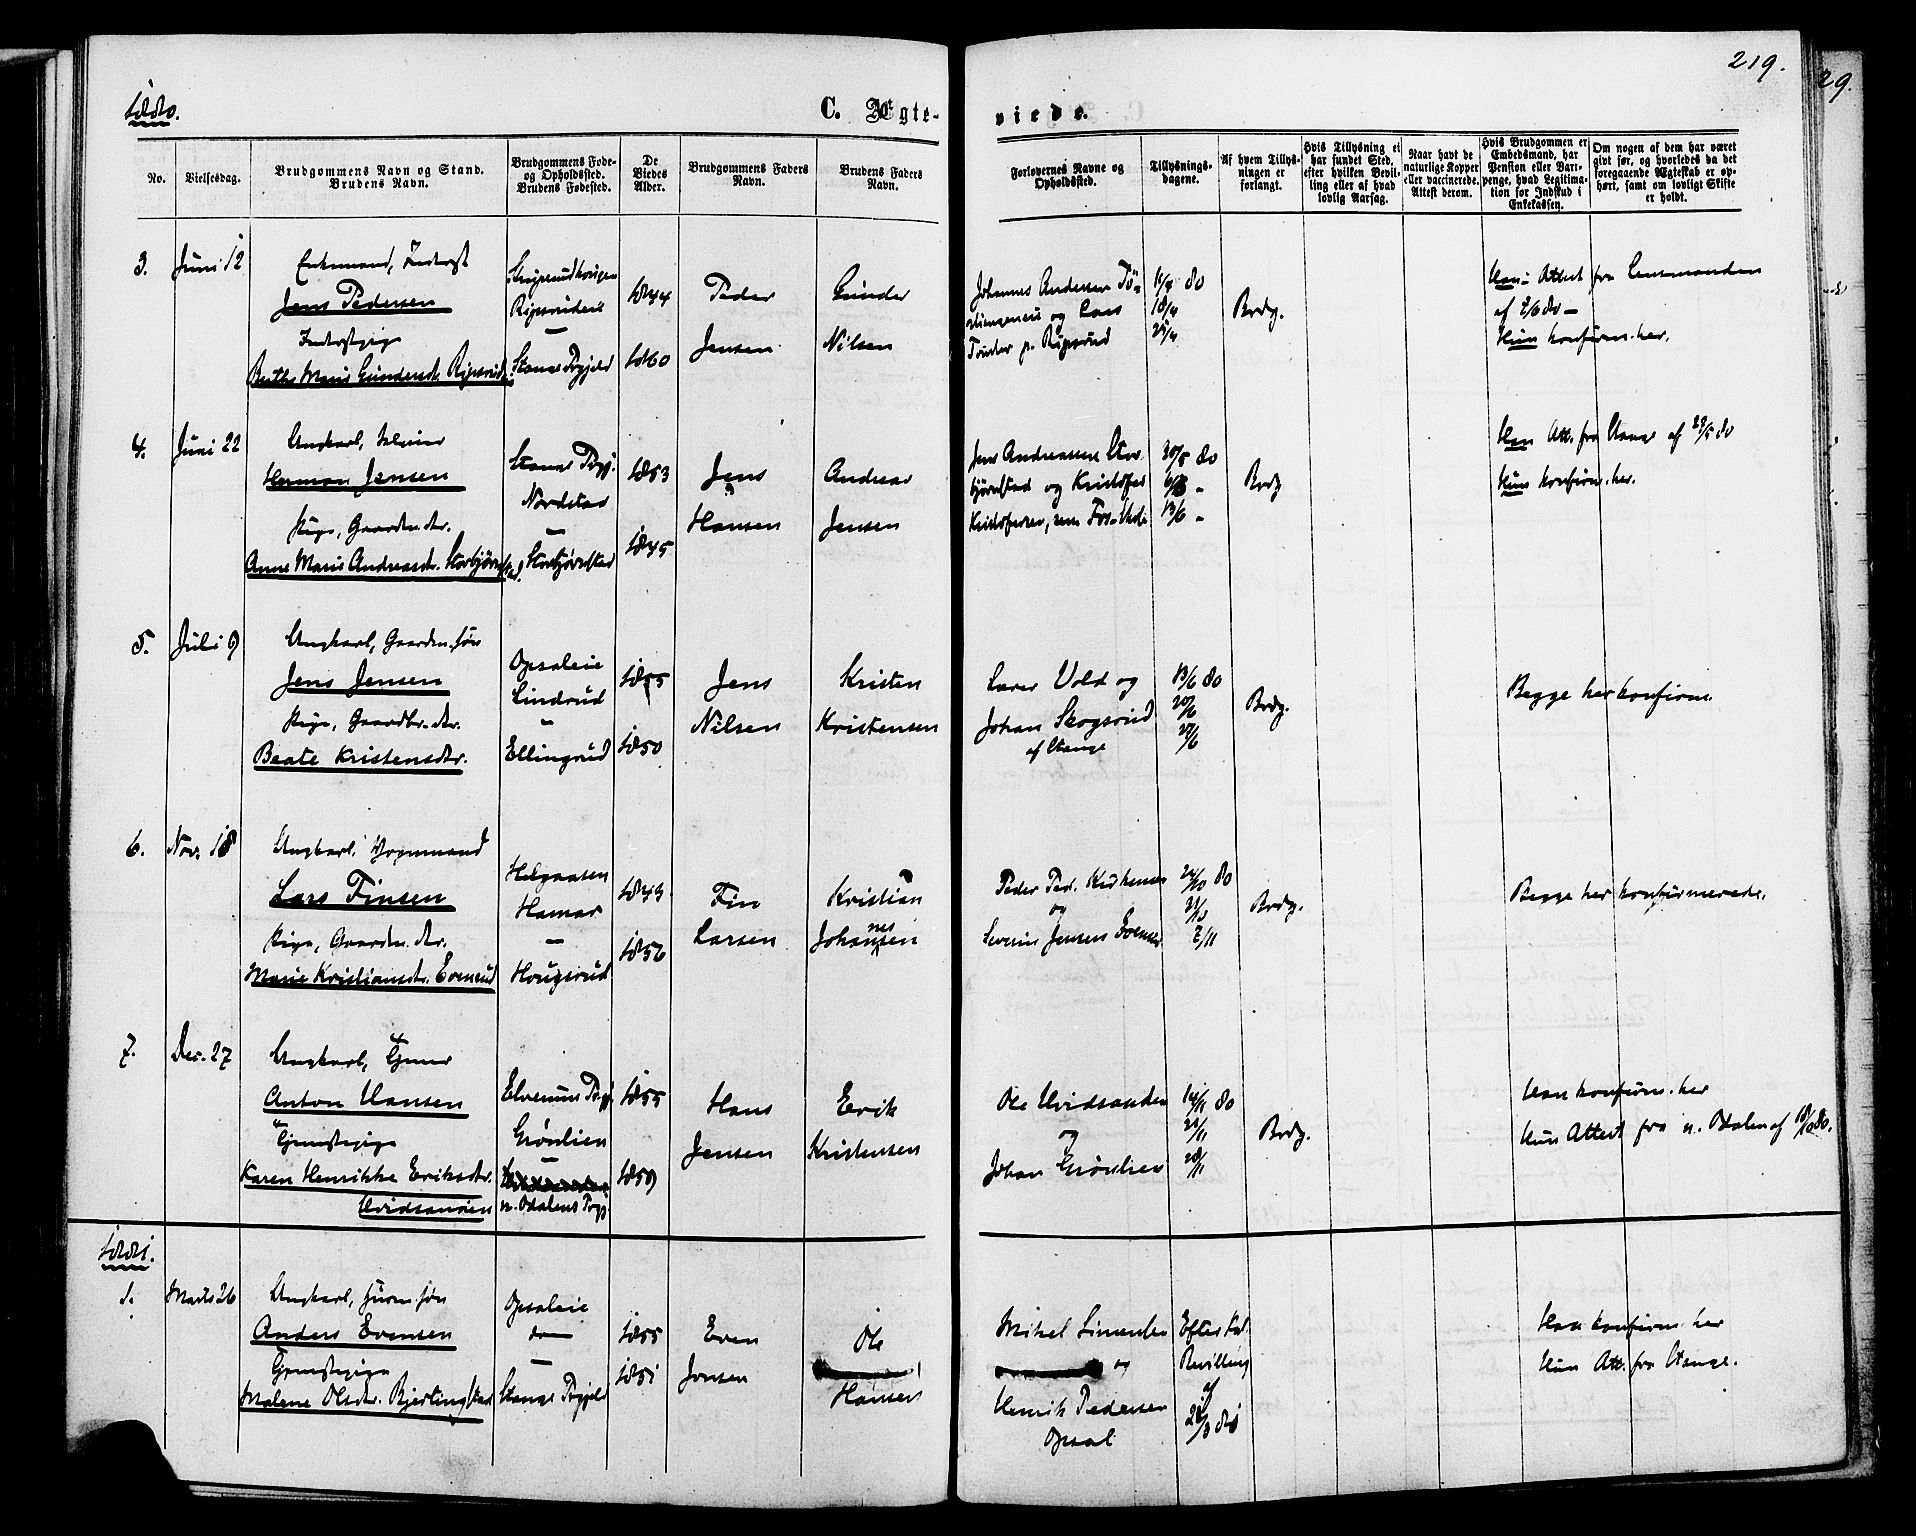 219.
29.
1880.
C. Ægte-
viede.
No.
Vielsesdag.
Brudgommens Navn og Stand.
Brudens Navn.
Brudgommens Føde-
og Opholdssted.
Brudens Fødested.
De
Viedes
Alder.
Brudgommens Faders
Navn.
Brudens Faders
Navn.
Forlovernes Navne og
Opholdssted.
Tillysnings-
dagene.
Af hvem Tillys-
ningen er
forlangt.
Hvis Tillysning ei
har fundet Sted,
efter hvilken Bevil-
ling eller af hvad
lovlig Aarsag.
Naar havt de
naturlige Kopper
eller vaccinerede.
Attest derom.
Hvis Brudgommen er
Embedsmand, har
Pension eller Vart-
penge, hvad Legitima-
tion for Indskud i
Enkekassen.
Om nogen af dem har været
givt før, og hvorledes da det
foregaaende Ægteskab er op-
hørt, samt om lovligt Skifte
er holdt.
3.
Juni 12
Enkemand, Inderst
Jens Pedersen
Inderstpige
Berthe Marie Gundersdtr. Ripsrudeie
Ripsrudeie
—
Stange Prgjeld
1844
1860
Peder
Jensen
Gunder
Nilsen
Johannes Andersen
og Lars
Tønder p. Ripsrud
11/4 80
18/4
25/4
Brdg.
Han Attest fra Lensmanden
af 2/6 80 —
Hun konfirm. her.
4.
Juni 22
Ungkarl,
Herman Jensen
Pige, Gaardm. dtr.
Anne Marie Andreasdr. Storbjørnstad.
Stange Prgj.
Nordstad
—
Storbjørnstad
1853
1845
Jens
Hansen
Andreas
Jensen
Jens Andreassen Stor-
bjørnstad og Kristofer
Kristofersen,
30/5 80
6/6 "
13/6 "
Brdg
Han Att. fra Stange af 29/5 80
Hun konfirm. her.
5.
Juli 9
Ungkarl, Gaardm. søn
Jens Jensen
Pige, Gaardbr. dtr.
Beate Kristensdtr.
Opsaleie
Lindrud
"
Ellingsrud
1855
1850
Jens
Nilsen
Kristen
Kristensen
Lærer Vold og
Johan Skogsrud
af Stange
13/6 80
20/6
27/6
Brdg.
Begge her konfirm.
6.
Nov. 18
Ungkarl, Vognmand
Lars Finsen
Pige, Gaardm. dtr.
Marie Kristiansdtr. Evensrud
Helgaasen
Hamar
—
Hougsrud
1849
1856
Fin
Larsen
Kristian
Johannesen
Peder Ped.
og
Severin Jensen
24/10 80
31/10
7/11
Brdg.
Begge her konfirmerede.
7.
Dec. 27
Ungkarl, Tjener
Anton Hansen
Tjenestepige
Karen Henrikke Eriksdtr.
Hvidsanden
Elverum Prgj.
Grønlien
—
n. Odalens Prgj.
1855
1859
Hans
Jensen
Erik
Kristensen
Ole Hvidsanden
og
Johan Grønlien
14/11 80
21/11
28/11
Brdg.
Han konfirm. her
Hun Attest fra n. Odalen af 18/10 80.
1881.
1.
Marts 26
Ungkarl, Husm. søn
Anders Evensen
Tjenestepige
Malene Olsdtr. Bjerlingstad
Opsaleie
—
Stange Prgjeld
1855
1851
Even
Jonsen
Ole
Hansen
Mikel Simensen
og
Henrik Pedersen
Opsal
Efter Kgl.
Bevilling
af
21/3 81
Han konfirm. her
Hun Att. fra Stange.